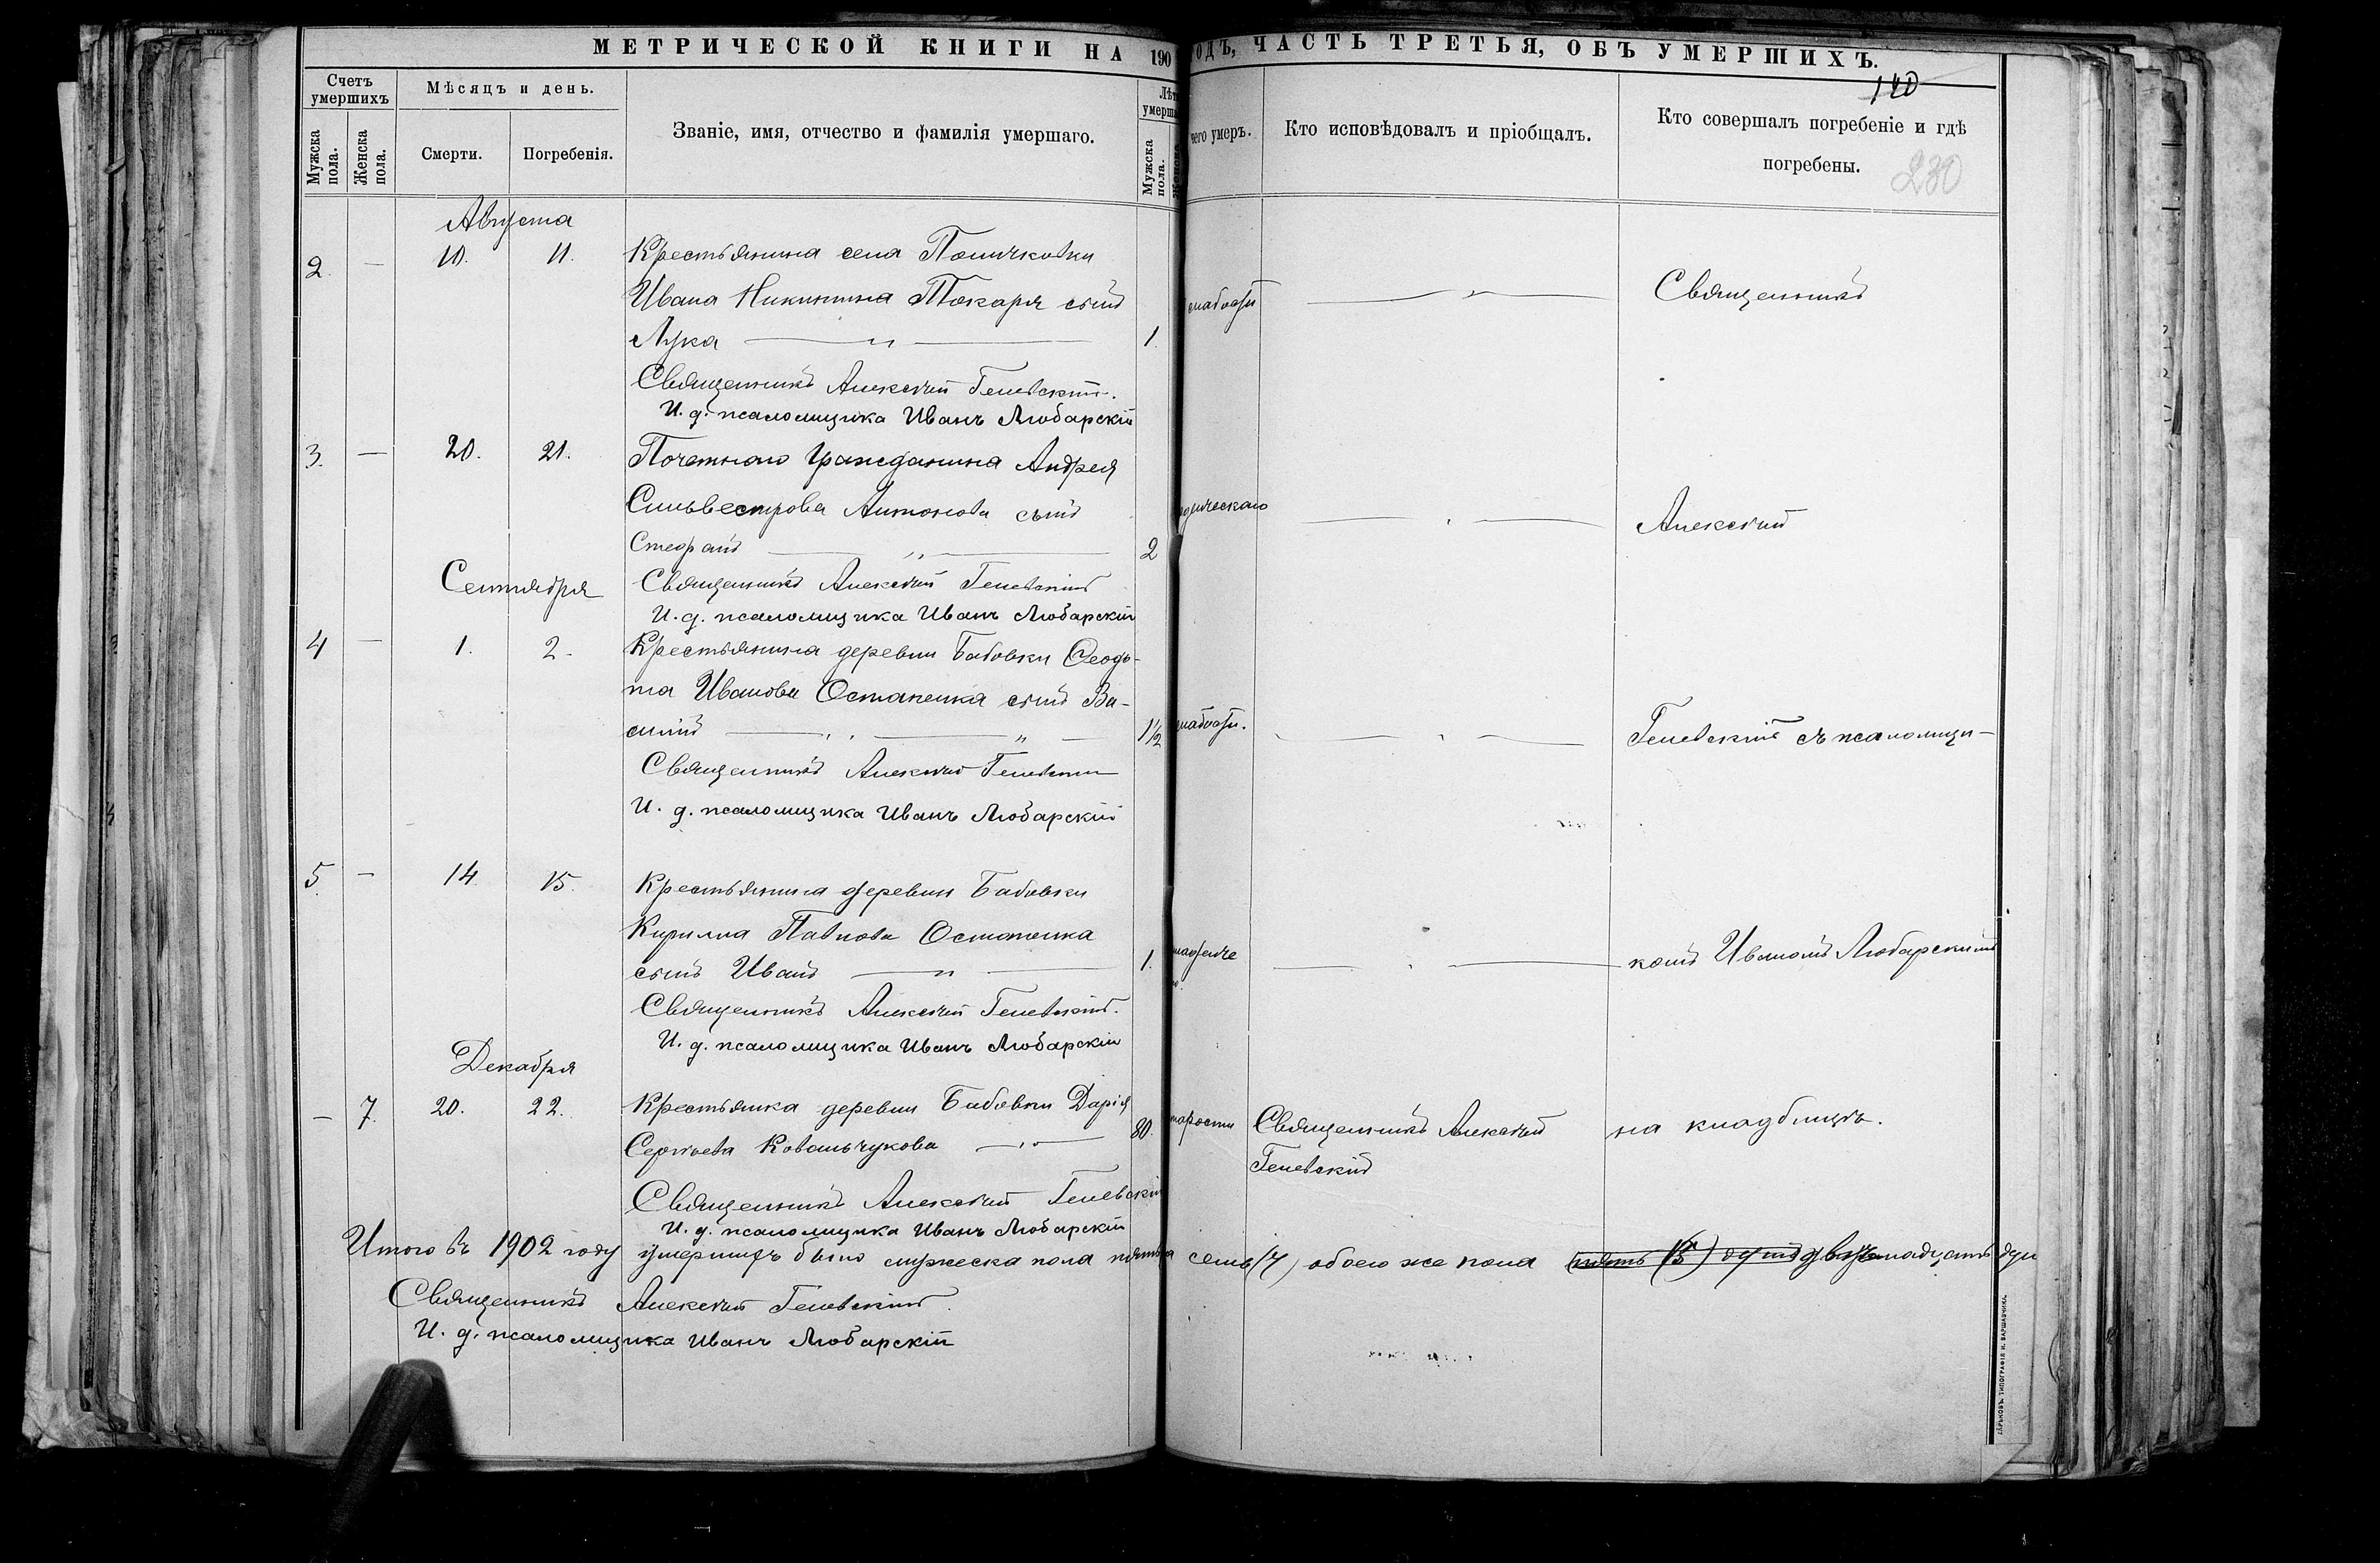 МЕТРИЧЕСКОЙ КНИГИ НА 190
ОДЪ, ЧАСТЬ ТРЕТЬЯ, ОБЪ УМЕРШИХЪ.
140
Счетъ умершихъ
Мѣсяцъ и день.
Званіе, имя, отчество и фамилія умершаго.
Мужска пола.
Женска пола.
Смерти.
Погребенія.
Мужска пола.
чего умеръ.
Кто исповѣдовалъ и пріобщалъ.
Кто совершалъ погребеніе и гдѣ
погребены.
230
Августа
2. — 10. 11. Крестьянина села
Ивана Никитина Токаря сынъ
Лука — „ — 1.
слабости
Священникъ
Священникъ Алексѣй Гелевскій.
И. д. псаломщика Иванъ Любарскій
3. — 20. 21. Почетнаго Гражданина Андрея
Сильвестрова Антонова сынъ
Стефанъ — „ — 2
Алексѣй
Сентября
Священникъ Алексѣй Гелевскій
И. д. псаломщика Иванъ Любарскій
4 — 1. 2. Крестьянина деревни Бабовки Ѳеодо-
та Иванова Остапенка сынъ Ва-
силій — „ — 1½
слабости.
Гелевскій съ псаломщи-
Священникъ Алексѣй Гелевскій
И. д. псаломщика Иванъ Любарскій
5. — 14. 15. Крестьянина деревни Бабовки
Кирилла Павлова Остапенка
сынъ Иванъ — „ — 1.
комъ Иваномъ Любарскимъ
Священникъ Алексѣй Гелевскій.
И. д. псаломщика Иванъ Любарскій
Декабря
— 7. 20. 22. Крестьянка деревни Бабовки Дарія
Сергѣева Ковальчукова — „ — 80.
старости
Священникъ Алексѣй
Гелевскій
на кладбищѣ.
Священникъ Алексѣй Гелевскій
И. д. псаломщика Иванъ Любарскій
Итого въ 1902 году умершихъ было мужеска пола пять семь (7) обоего же пола двѣнадцать душ
Священникъ Алексѣй Гелевскій.
И. д. псаломщика Иванъ Любарскій
ХАРЬКОВЪ. ТИПОГРАФІЯ И. ВАРШАВЧИКА.